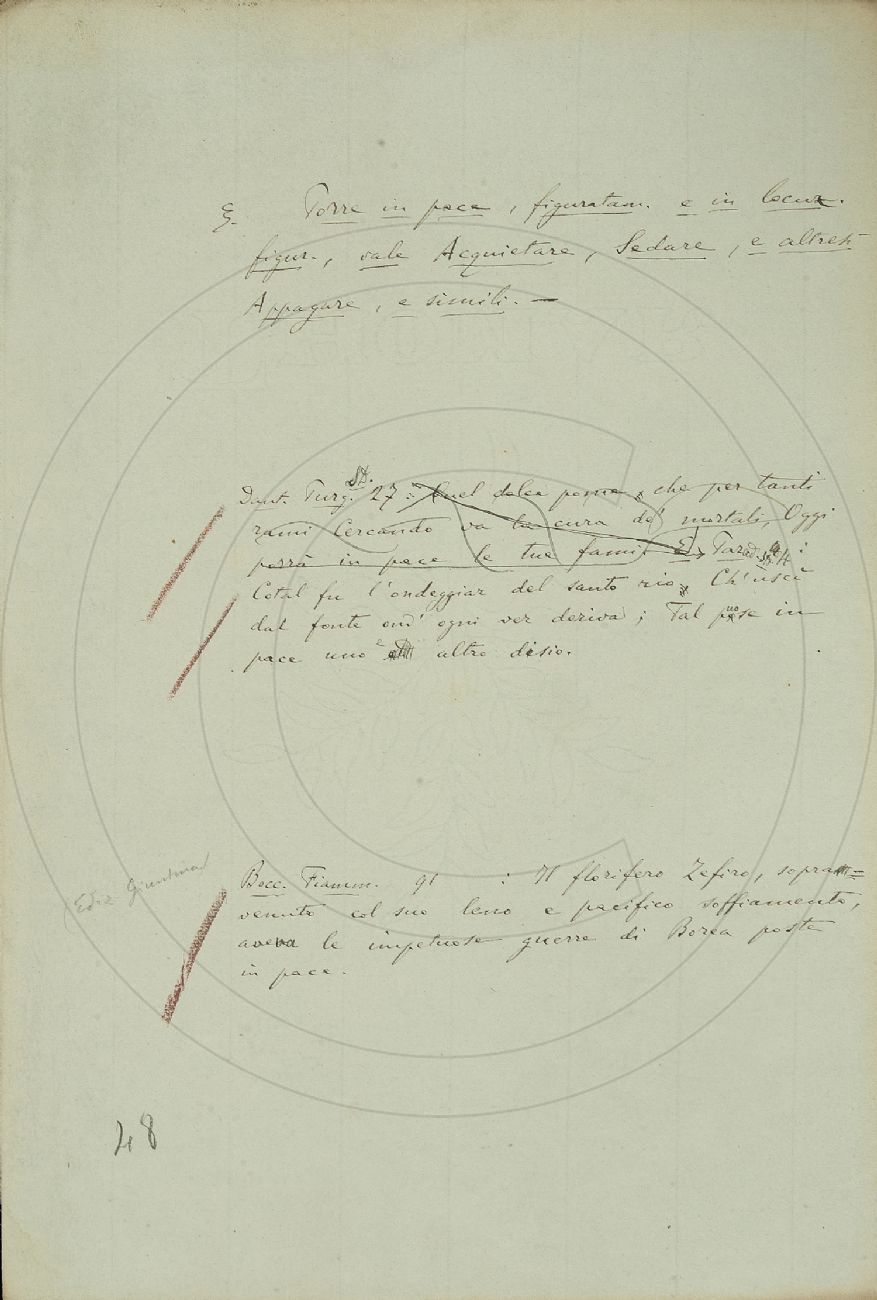 §. Porre in pace, figuratam. e in locuz.
figur., vale Acquietare, Sedare, e altresì
Appagare, e simili. —
St.
Dant. Purg. 27: Quel dolce pome, che per tanti
rami Cercando va la cura de' mortali, Oggi
porrà in pace le tue fami. E Parad. 4:
Cotal fu l'ondeggiar del santo rio, Ch'uscì
dal fonte ond' ogni ver deriva; Tal puose in
pace uno e altro disio.
(Ediz. Giuntina)
Bocc. Fiamm. 91 : Il florifero Zefiro, sopra=
venuto col suo leno e pacifico soffiamento,
aveva le impetuose guerre di Borea poste
in pace.
48